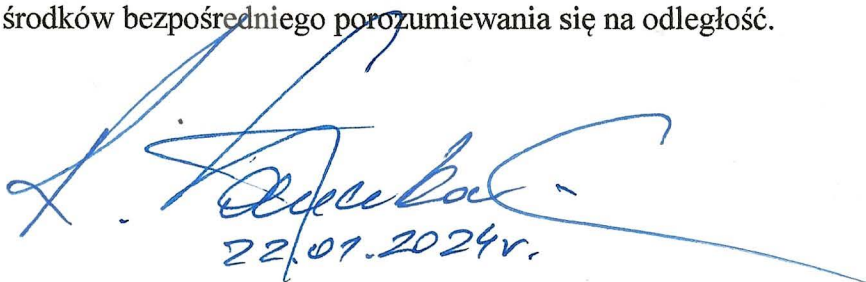 środków bezpośredniego porozumiewania się na odległość.
22.01.2024r.